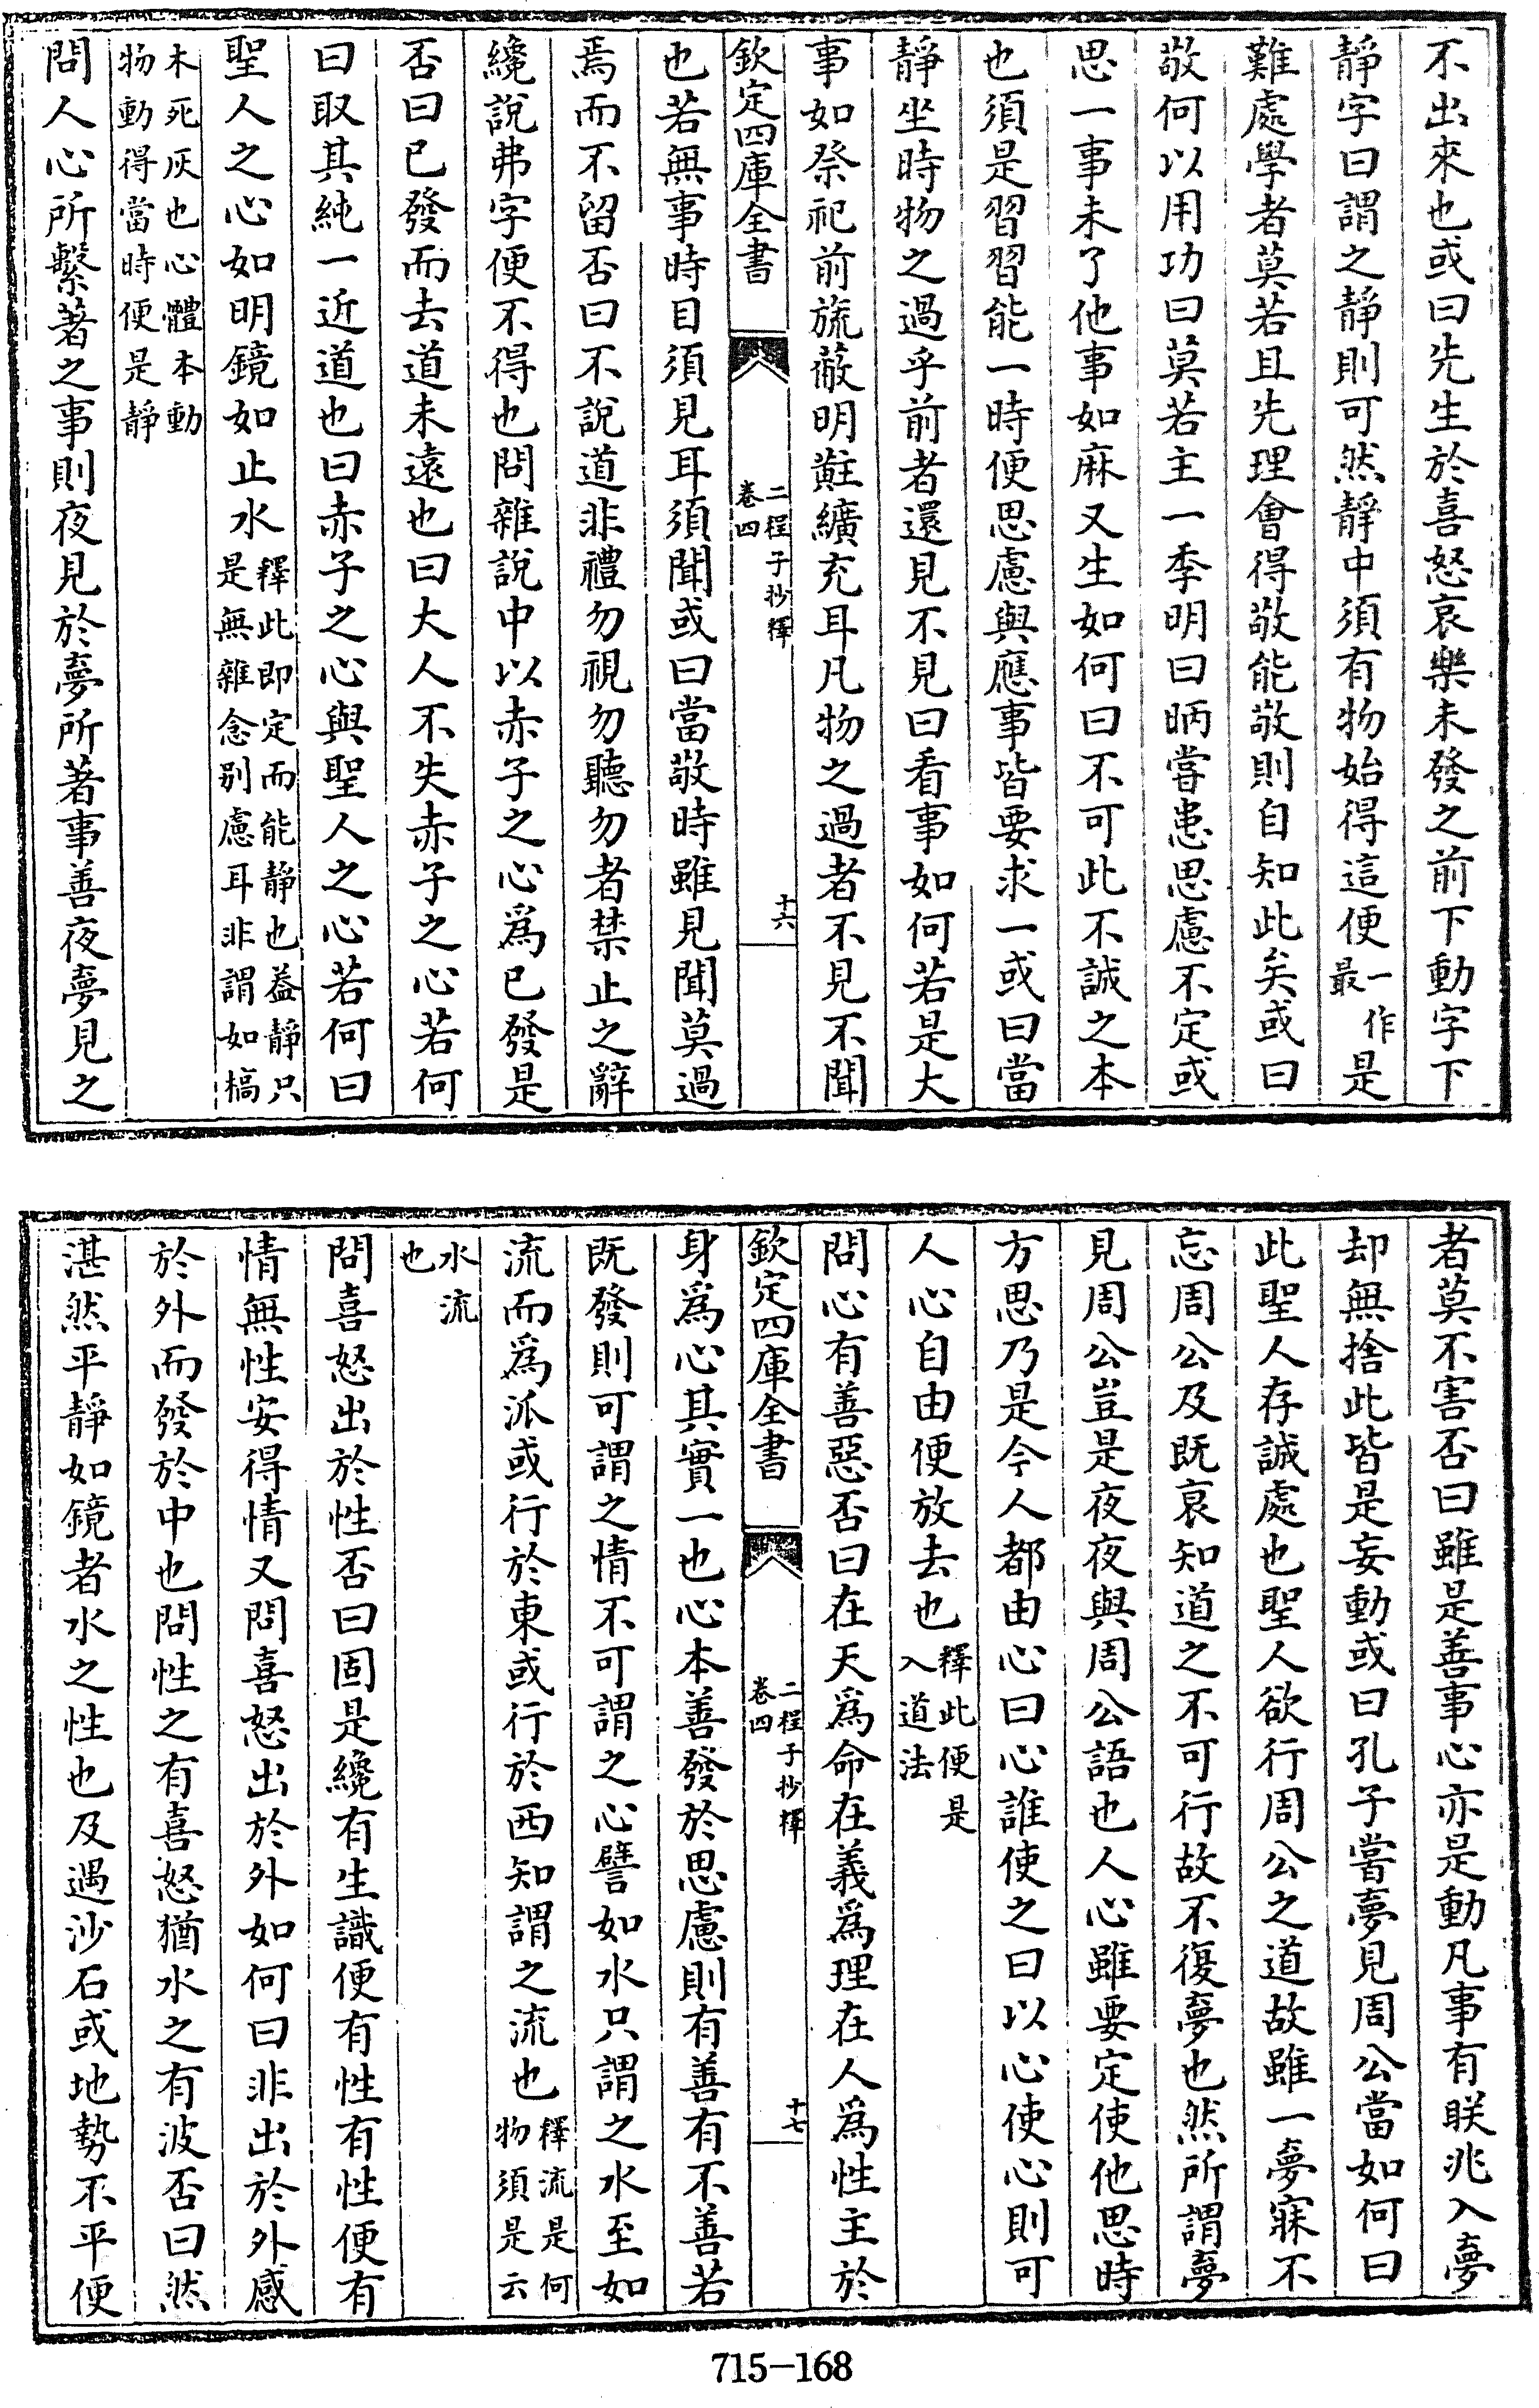 不出來也或曰先生於喜怒哀樂未發之前下動字下
靜字曰謂之靜則可然靜中須有物始得這便一作最是
難處學者莫若且先理會得敬能敬則自知此矣或曰
敬何以用功曰莫若主一季明曰昞嘗患思慮不定或
思一事未了他事如麻又生如何曰不可此不誠之本
也須是習習能一時便思慮與應事皆要求一或曰當
靜坐時物之過乎前者還見不見曰看事如何若是大
事如祭祀前旒蔽明黈纊充耳凡物之過者不見不聞
欽定四庫全書
二程子抄釋
卷四
十六
也若無事時目須見耳須聞或曰當敬時雖見聞莫過
焉而不留否曰不說道非禮勿視勿聽勿者禁止之辭
纔說弗字便不得也問雜說中以赤子之心爲已發是
否曰已發而去道未遠也曰大人不失赤子之心若何
曰取其純一近道也曰赤子之心與聖人之心若何曰
聖人之心如明鏡如止水釋此即定而能靜也益靜只是無雜念别慮耳非謂如槁
木死灰也心體本動物動得當時便是靜
問人心所繫著之事則夜見於夢所著事善夜夢見之
者莫不害否曰雖是善事心亦是動凡事有眹兆入夢
却無捨此皆是妄動或曰孔子嘗夢見周公當如何曰
此聖人存誠處也聖人欲行周公之道故雖一夢寐不
忘周公及既衰知道之不可行故不復夢也然所謂夢
見周公豈是夜夜與周公語也人心雖要定使他思時
方思乃是今人都由心曰心誰使之曰以心使心則可
人心自由便放去也釋此便是入道法
問心有善惡否曰在天爲命在義爲理在人爲性主於
欽定四庫全書
二程子抄釋
卷四
十七
身爲心其實一也心本善發於思慮則有善有不善若
既發則可謂之情不可謂之心譬如水只謂之水至如
流而爲派或行於東或行於西知謂之流也釋流是何物須是云
水流也
問喜怒出於性否曰固是纔有生識便有性有性便有
情無性安得情又問喜怒出於外如何曰非出於外感
於外而發於中也問性之有喜怒猶水之有波否曰然
湛然平靜如鏡者水之性也及遇沙石或地勢不平便
715-168